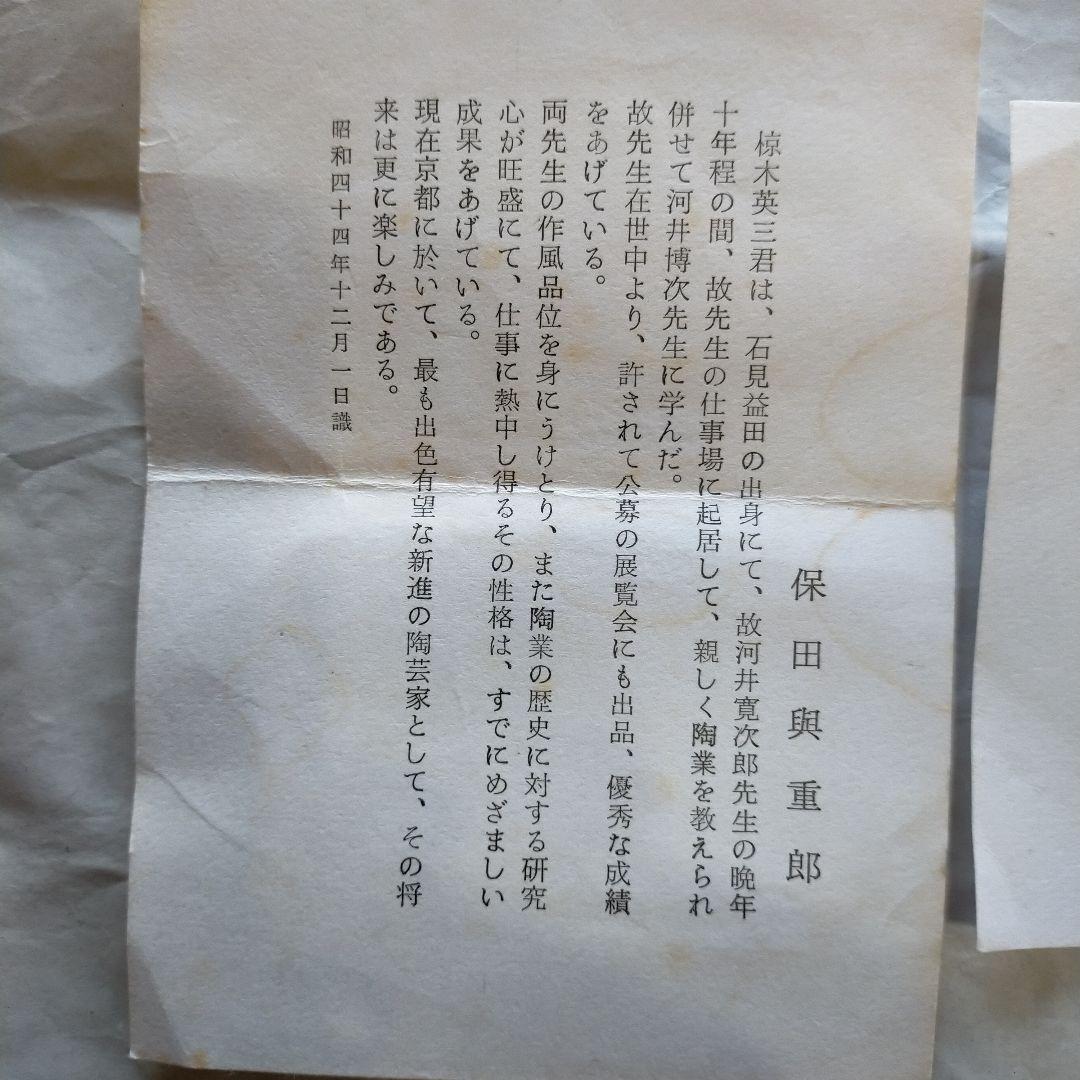 保田與重郎
椋木英三君は、石見益田の出身にて、故河井寛次郎先生の晩年
十年程の間、故先生の仕事場に起居して、親しく陶業を教えられ
併せて河井博次先生に学んだ。
故先生在世中より、許されて公募の展覧会にも出品、優秀な成績
をあげている。
両先生の作風品位を身にうけとり、また陶業の歴史に対する研究
心が旺盛にて、仕事に熱中し得るその性格は、すでにめざましい
成果をあげている。
現在京都に於いて、最も出色有望な新進の陶芸家として、その将
来は更に楽しみである。
昭和四十四年十二月一日識